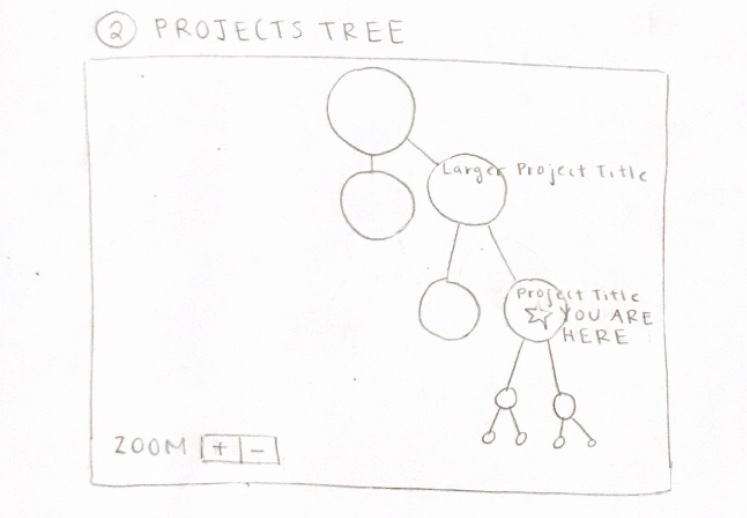 2 PROJECTS TREE
Larger Project Title
Project Title
YOU ARE
HERE
ZOOM + -